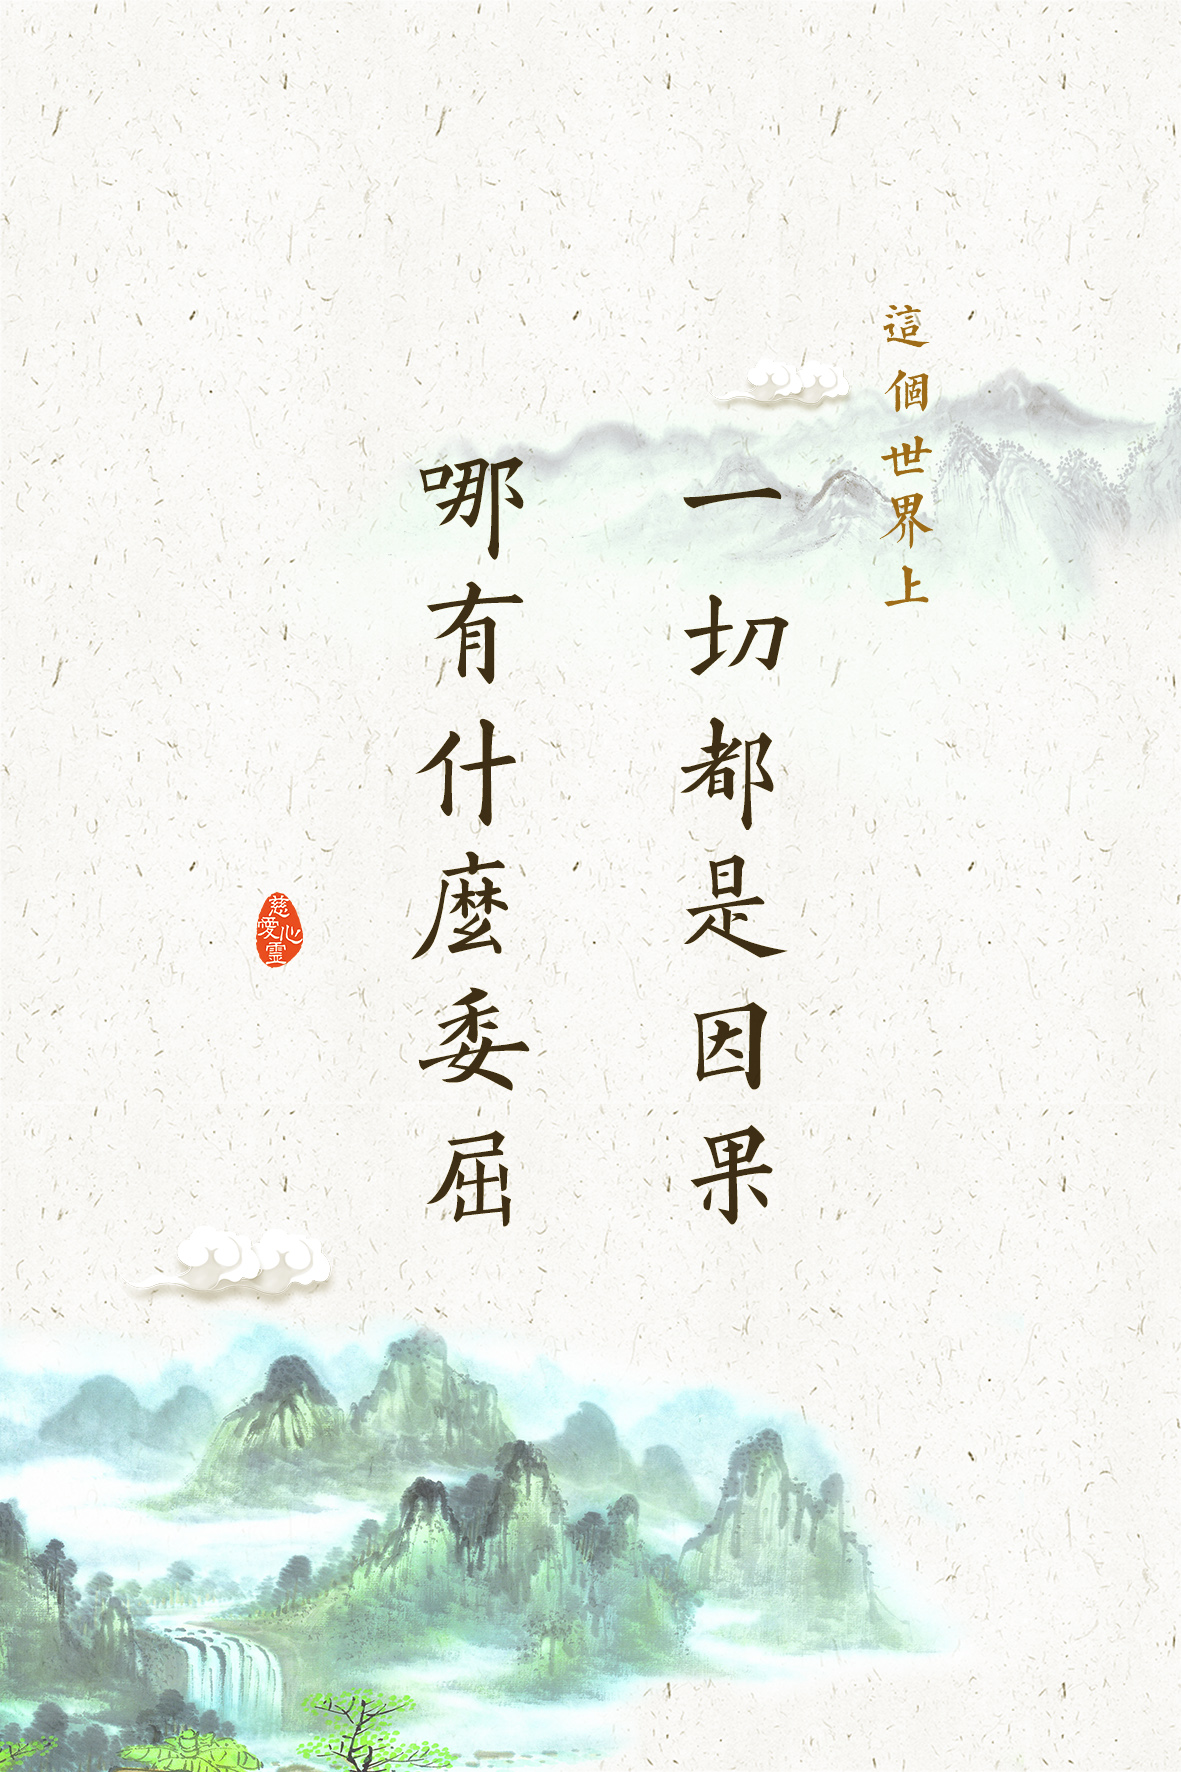 這個世界上
一切都是因果
哪有什麼委屈
慈愛心靈